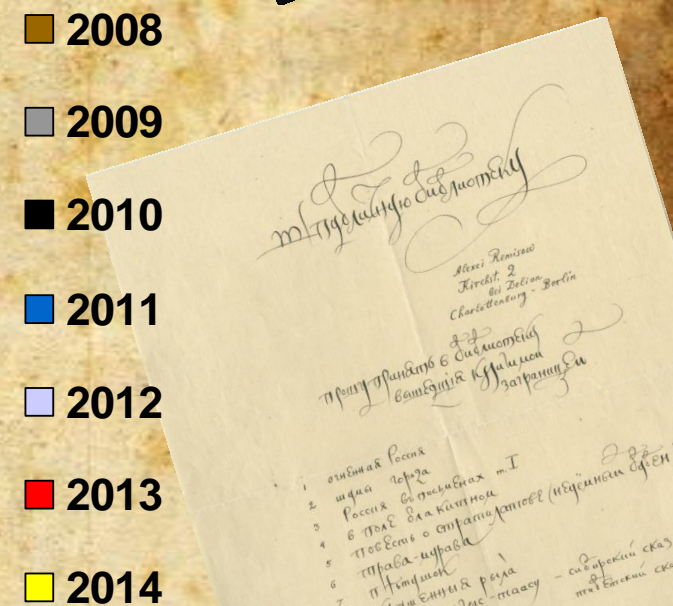 2008
2009
2010
2011
2012
2013
2014
библіотеку
Alexei Remisow
Kirchst. 2
bei Delion
Charlottenburg - Berlin
прошу принять в библіотеку
вышедшія книги мои
заграницей
1 огненная Россия
2 шумы города
3 Россия в письменах т. I
4 в поле блакитном
5 повесть о стратилатове (неуёмный бубен)
6 трава-мурава
7 петушок
- сибирский сказ
тибетский сказ